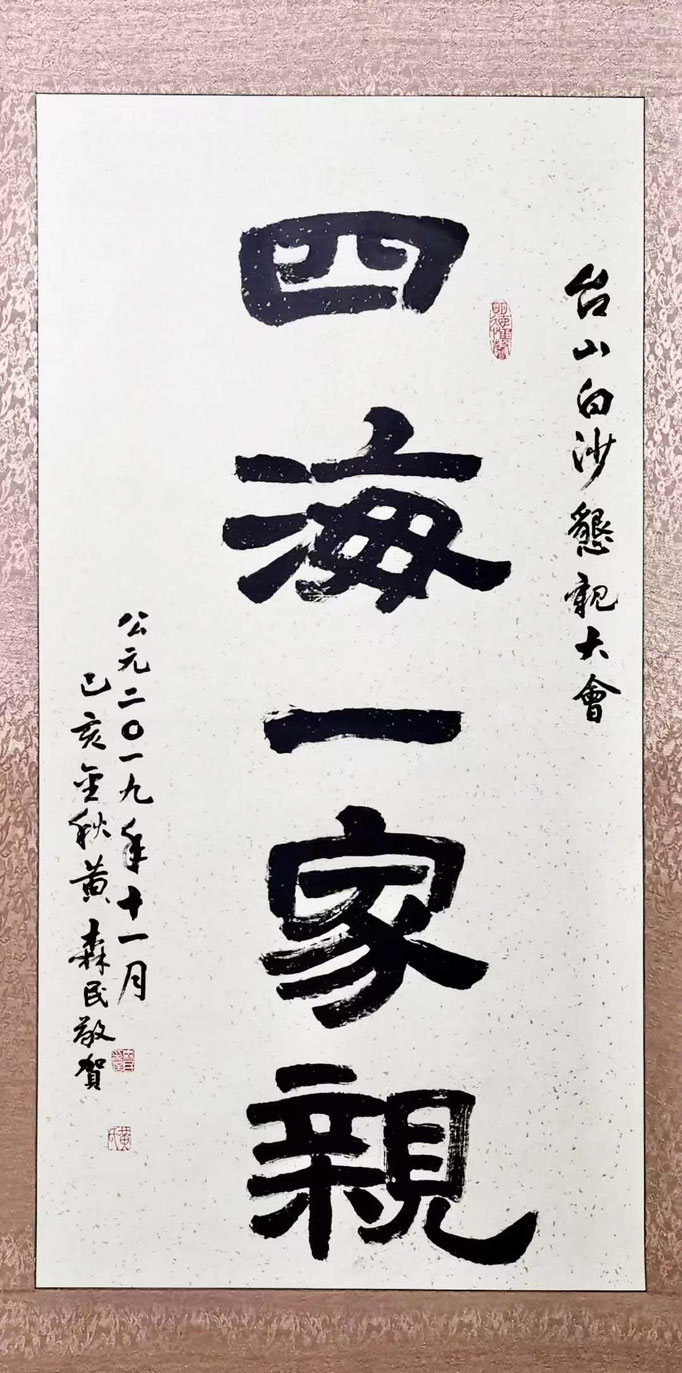 台山白沙懇親大會
四海一家親
公元二〇一九年十一月
己亥金秋黄森民敬賀